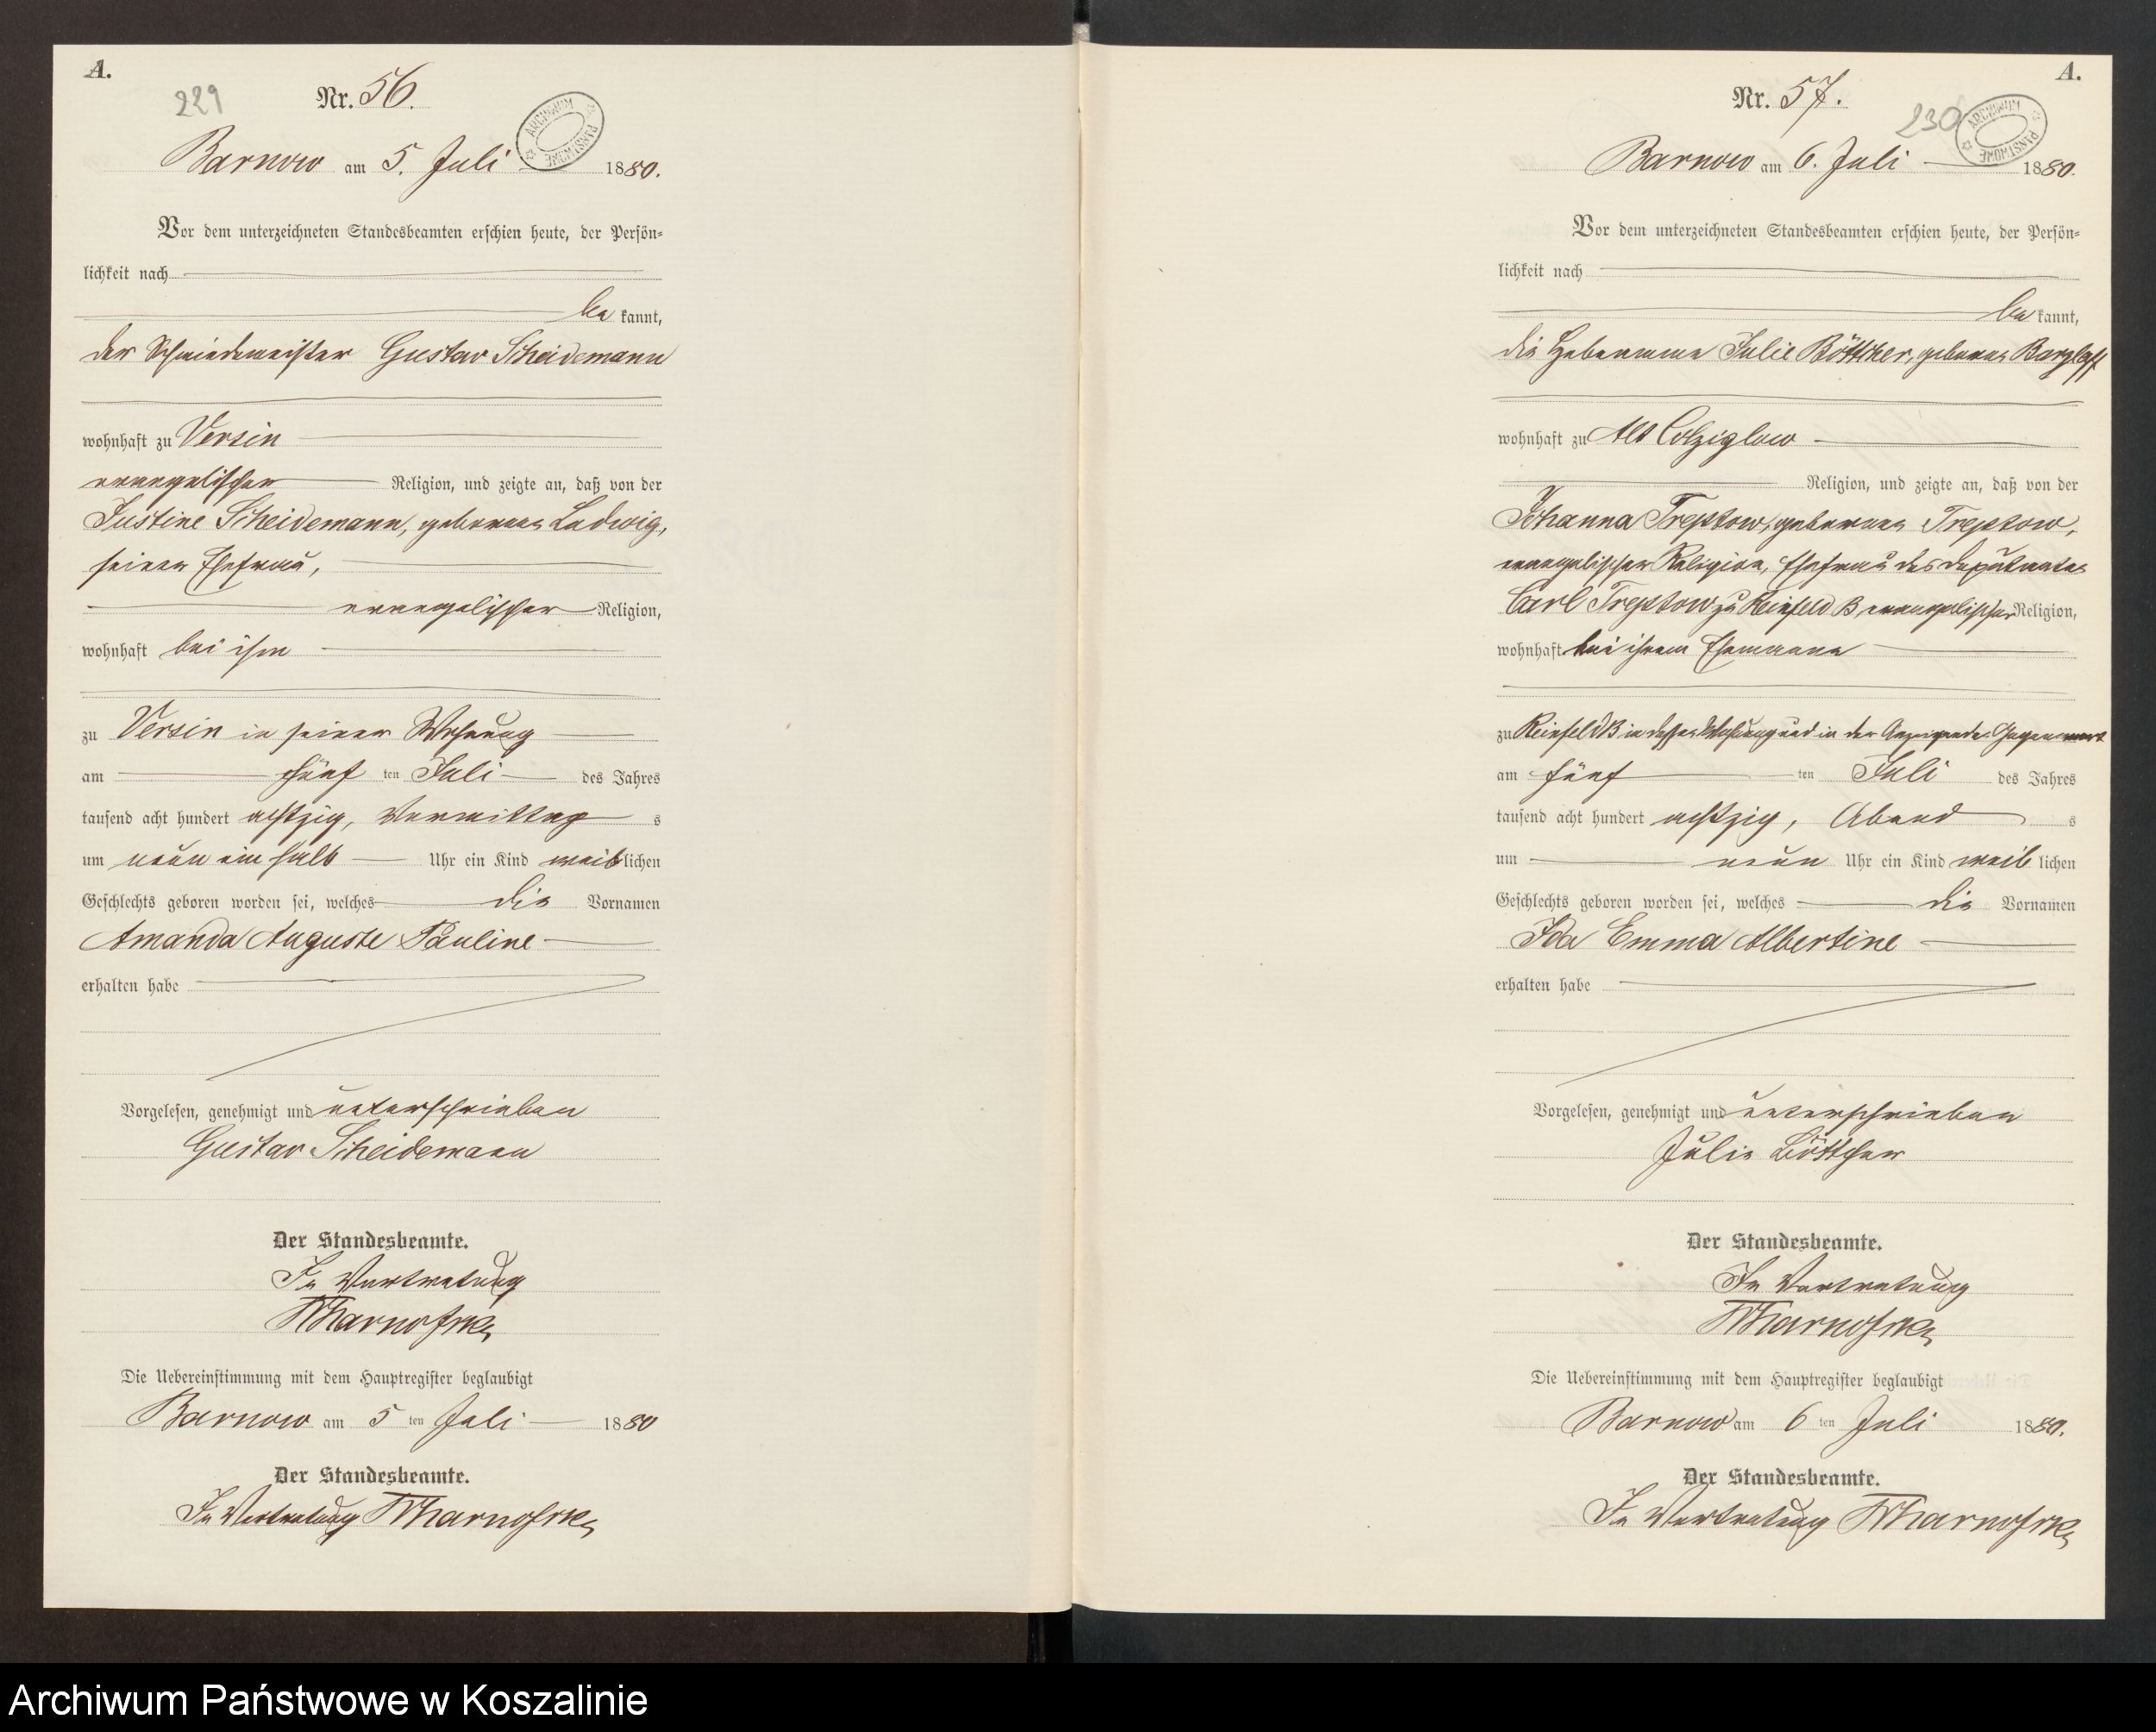 A.
229
Nr. 56.
ARCHIWUM PAŃSTWOWE
Barnow am 5. Juli 1880.
Vor dem unterzeichneten Standesbeamten erschien heute, der Persön-
lichkeit nach
be kannt,
der Schmiedemeister Gustav Scheidemann
wohnhaft zu Versin
evangelischer Religion, und zeigte an, daß von der
Justine Scheidemann, geborenen Ladwig,
seiner Ehefrau,
evangelischer Religion,
wohnhaft bei ihm
zu Versin in seiner Wohnung
am fünf ten Juli des Jahres
tausend acht hundert achtzig, Vormittag s
um neun ein halb Uhr ein Kind weiblichen
Geschlechts geboren worden sei, welches die Vornamen
Amanda Auguste Pauline
erhalten habe
Vorgelesen, genehmigt und unterschrieben
Gustav Scheidemann
Der Standesbeamte.
In Vertretung
Die Uebereinstimmung mit dem Hauptregister beglaubigt
Barnow am 5 ten Juli 1880
Der Standesbeamte.
In Vertretung
A.
Nr. 57.
230
ARCHIWUM PAŃSTWOWE
Barnow am 6. Juli 1880.
Vor dem unterzeichneten Standesbeamten erschien heute, der Persön-
lichkeit nach
be kannt,
die Hebamme Julie Böttcher, geborene
wohnhaft zu Alt Colziglow
Religion, und zeigte an, daß von der
Johanna Treptow, geborenen Treptow,
evangelischer Religion, Ehefrau des Deputanten
Carl Treptow zu Reinfeld B, evangelischer Religion,
wohnhaft bei ihrem Ehemanne
zu Reinfeld B in dessen Wohnung und in der Anzeigenden Gegenwart
am fünf ten Juli des Jahres
tausend acht hundert achtzig, Abend s
um neun Uhr ein Kind weib lichen
Geschlechts geboren worden sei, welches die Vornamen
Ida Emma Albertine
erhalten habe
Vorgelesen, genehmigt und unterschrieben
Julie Böttcher
Der Standesbeamte.
In Vertretung
Die Uebereinstimmung mit dem Hauptregister beglaubigt
Barnow am 6 ten Juli 1880.
Der Standesbeamte.
In Vertretung
Archiwum Państwowe w Koszalinie